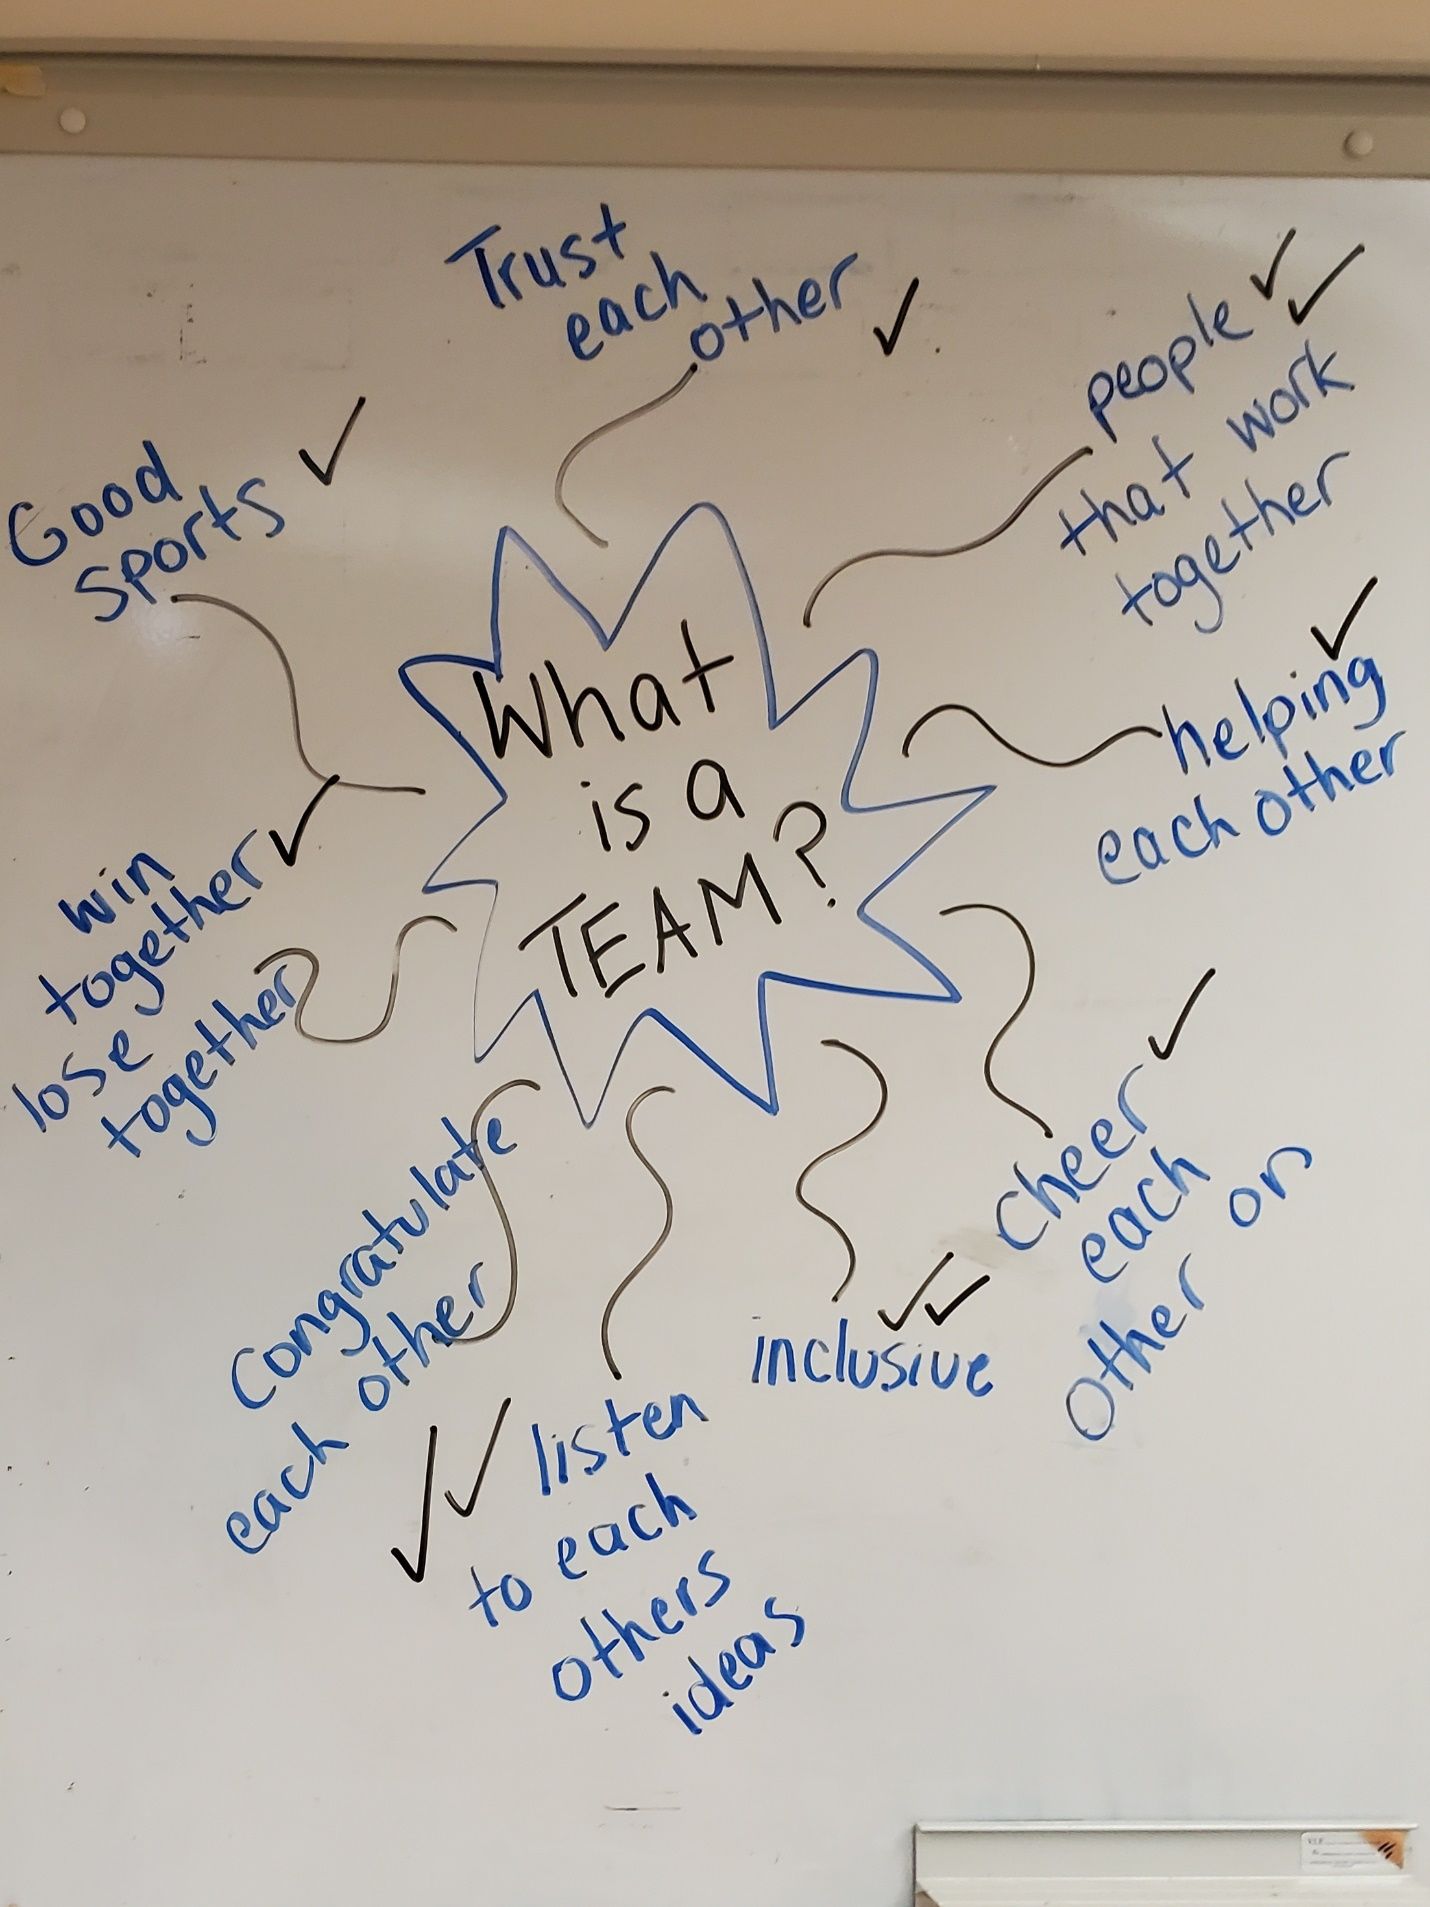 What
is a
TEAM?
Trust
each
other ✓
people ✓✓
that work
together
helping ✓
each other
cheer ✓
each
other on
inclusive ✓✓
✓✓ listen
to each
others
ideas
Congratulate
each other
win
together ✓
lose
together
Good
sports ✓